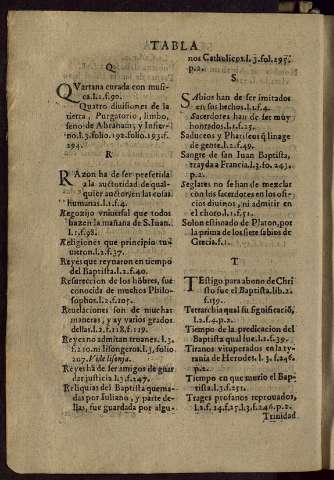 TABLA
Q
QVartana curada con musi-
ca.l.2.f.90.
Quatro diuisiones de la
tierra, Purgatorio, limbo,
seno de Abraham, y Infier-
no.l.3.folio.192.folio.193.f.
294.
R
RAzon ha de ser preferida
a la auctoridad de qual-
quier auctor en las cosas
humanas.l.1.f.4.
Regozijo vniuersal que todos
hazen la mañana de S.Iuan.
l.1.f.98.
Religiones que principio tu-
uieron.l.2.f.37.
Reyes que reynaron en tiempo
del Baptista.l.2.f.40.
Resurreccion de los hõbres, fue
conocida de muchos Philo-
sophos.l.2.f.105.
Reuelaciones son de muchas
maneras, y ay varios grados
dellas.l.2.f.118.f.119.
Reyes no admitan truanes.l.3.
f.210.ni lisongeros.l.3.folio
207. Vide lisonja.
Reyes ha de ser amigos de guar
dar justicia l.3.f.247.
Reliquias del Baptista quema-
das por Iuliano, y parte de-
llas, fue guardada por algu-
nos Catholicos.l.3.fol.295.
p.2.
S
Sabios han de ser imitados
en sus hechos.l.1.f.4.
Sacerdotes han de ser muy
honrados.l.1.f.25.
Saduceos y Phariseos q̃ linage
de gente.l.2.f.49.
Sangre de san Iuan Baptista,
trayda a Francia.l.3.fo.243.
p.2.
Seglares no se han de mezclar
con los sacerdotes en los ofi-
cios diuinos, ni admitir en
el choro.l.1.f.51.
Solon estimado de Platon, por
la prima de los siete sabios de
Grecia.f.1.
T
TEstigo para abono de Chri
sto fue el Baptista.lib.2.
f.139.
Tetrarchia qual su significació,
l.2.f.4.p.2.
Tiempo de la predicacion del
Baptista qual fue.l.1.f.39.
Tiranos vituperados en la ty-
rania de Herodes. l.3.f.246.
p.2.
Tiempo en que murio el Bap-
tista.l.3.f.251.
Trages profanos reprouados,
l.2.f.24.f.27.l.3.f.246.p.2.
Trinidad